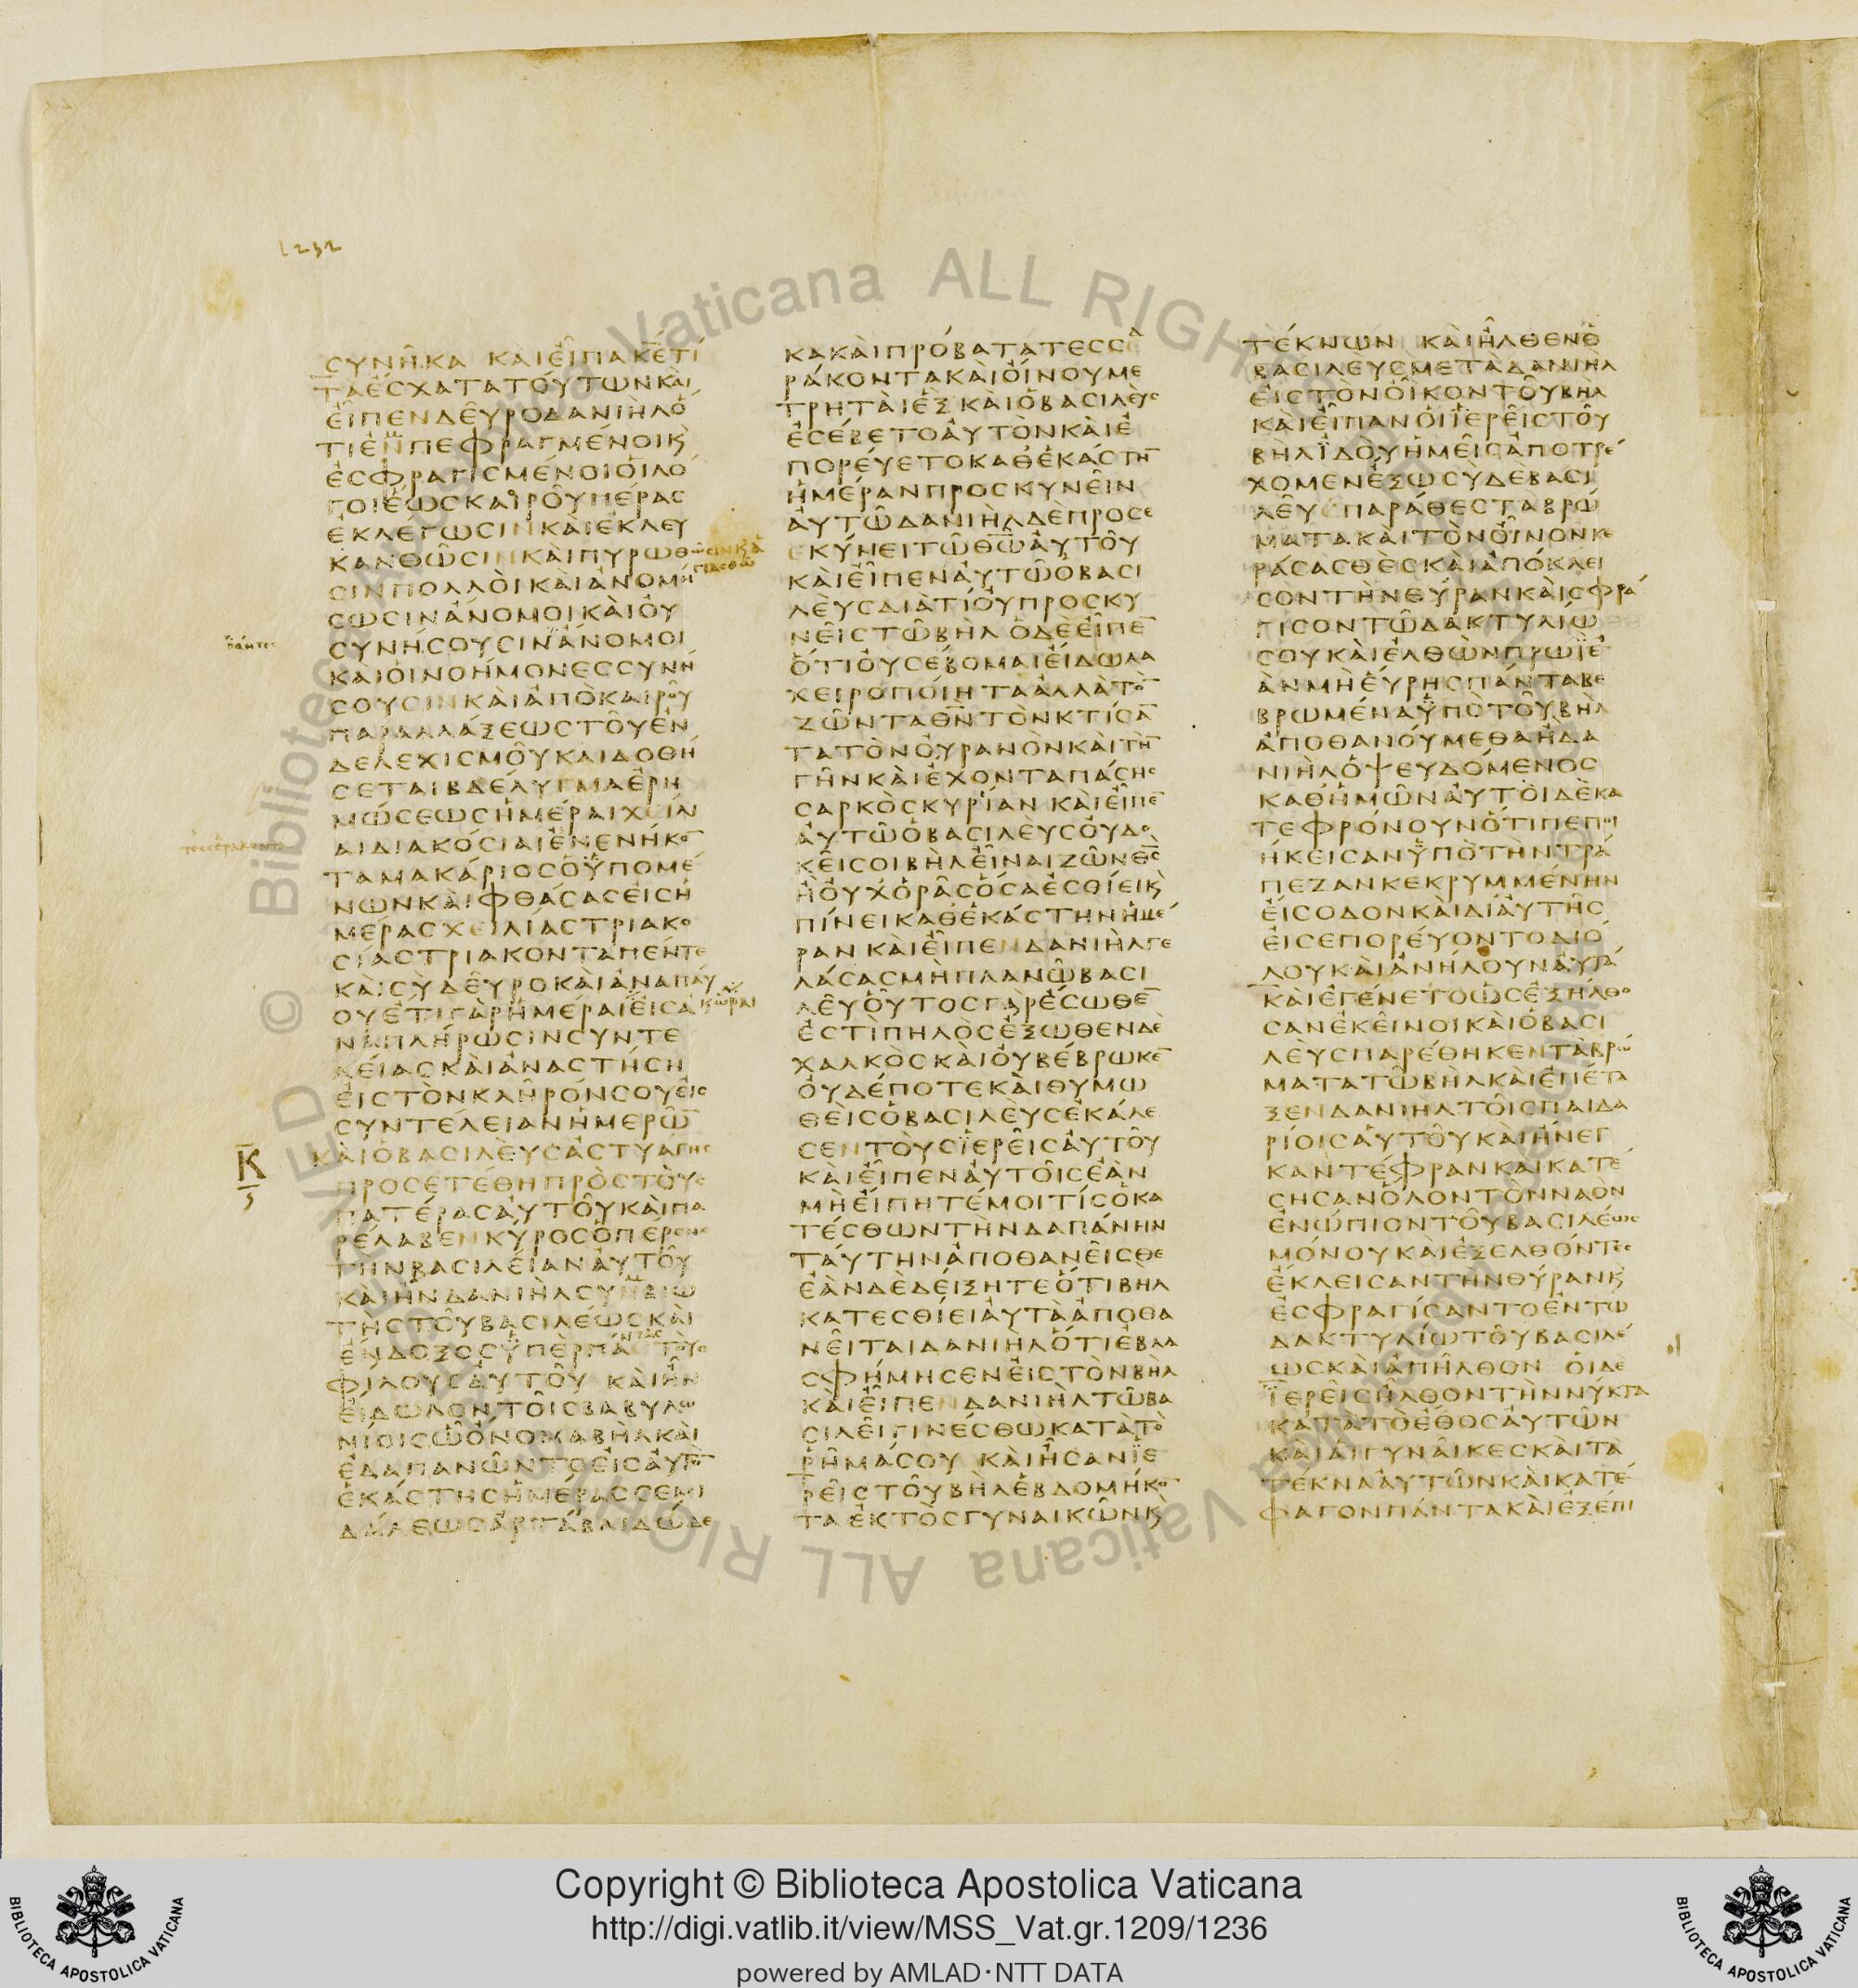 1232
ϹΥΝΗΚΑ ΚΑΙΕΙΠΑΚΕΤΙ
ΤΑΕϹΧΑΤΑΤΟΥΤΩΝΚΑΙ
ΕΙΠΕΝΔΕΥΡΟΔΑΝΙΗΛΟ
ΤΙΕΝΠΕΦΡΑΓΜΕΝΟΙΚ
ΕϹΦΡΑΓΙϹΜΕΝΟΙΟΙΛΟ
ΓΟΙΕΩϹΚΑΙΡΟΥΠΕΡΑϹ
ΕΚΛΕΓΩϹΙΝΚΑΙΕΚΛΕΥ
ΚΑΝΘΩϹΙΝΚΑΙΠΥΡΩΘΩϹΙΝΚΑ
ϹΙΝΠΟΛΛΟΙΚΑΙΑΝΟΜΗ
ϹΩϹΙΝΑΝΟΜΟΙΚΑΙΟΥ
ϹΥΝΗϹΟΥϹΙΝΑΝΟΜΟΙ
ΚΑΙΟΙΝΟΗΜΟΝΕϹϹΥΝΗ
ϹΟΥϹΙΝΚΑΙΑΠΟΚΑΙΡΟΥ
ΠΑΡΑΛΛΑΞΕΩϹΤΟΥΕΝ
ΔΕΛΕΧΙϹΜΟΥΚΑΙΔΟΘΗ
ϹΕΤΑΙΒΔΕΛΥΓΜΑΕΡΗ
ΜΩϹΕΩϹΗΜΕΡΑΙΧΕΙΛΙ
ΑΙΔΙΑΚΟϹΙΑΙΕΝΕΝΗΚΟ
ΤΑΜΑΚΑΡΙΟϹΟΥΠΟΜΕ
ΝΩΝΚΑΙΦΘΑϹΑϹΕΙϹΗ
ΜΕΡΑϹΧΕΙΛΙΑϹΤΡΙΑΚΟ
ϹΙΑϹΤΡΙΑΚΟΝΤΑΠΕΝΤΕ
ΚΑΙϹΥΔΕΥΡΟΚΑΙΑΝΑΠΑΥ
ΟΥΕΤΙΓΑΡΗΜΕΡΑΙΕΙϹΑ ΚΩΡΑΙ
ΝΑΠΛΗΡΩϹΙΝϹΥΝΤΕ
ΛΕΙΑϹΚΑΙΑΝΑϹΤΗϹΗ
ΕΙϹΤΟΝΚΛΗΡΟΝϹΟΥΕΙϹ
ϹΥΝΤΕΛΕΙΑΝΗΜΕΡΩ̅
Κ̅ ΚΑΙΟΒΑϹΙΛΕΥϹΑϹΤΥΑΓΗϹ
ΠΡΟϹΕΤΕΘΗΠΡΟϹΤΟΥϹ
ΠΑΤΕΡΑϹΑΥΤΟΥΚΑΙΠΑ
ΡΕΛΑΒΕΝΚΥΡΟϹΟΠΕΡϹΗϹ
ΤΗΝΒΑϹΙΛΕΙΑΝΑΥΤΟΥ
ΚΑΙΗΝΔΑΝΙΗΛϹΥΝΒΙΩ
ΤΗϹΤΟΥΒΑϹΙΛΕΩϹΚΑΙ
ΕΝΔΟΞΟϹΥΠΕΡΠΑΝΤΑϹΤΟΥϹ
ΦΙΛΟΥϹΑΥΤΟΥ ΚΑΙΗΝ
ΕΙΔΩΛΟΝΤΟΙϹΒΑΒΥΛΩ
ΝΙΟΙϹΩΟΝΟΜΑΒΗΛΚΑΙ
ΕΔΑΠΑΝΩΝΤΟΕΙϹΑΥΤΟ̅
ΕΚΑϹΤΗϹΗΜΕΡΑϹϹΕΜΙ
ΔΑΛΕΩϹΑΡΤΑΒΑΙΔΩΔΕ
ΚΑΚΑΙΠΡΟΒΑΤΑΤΕϹϹΑ
ΡΑΚΟΝΤΑΚΑΙΟΙΝΟΥΜΕ
ΤΡΗΤΑΙΕΞΚΑΙΟΒΑϹΙΛΕΥϹ
ΕϹΕΒΕΤΟΑΥΤΟΝΚΑΙΕ
ΠΟΡΕΥΕΤΟΚΑΘΕΚΑϹΤΗ̅
ΗΜΕΡΑΝΠΡΟϹΚΥΝΕΙΝ
ΑΥΤΩΔΑΝΙΗΛΔΕΠΡΟϹΕ
ΕΚΥΝΕΙΤΩΘΩ̅ΑΥΤΟΥ
ΚΑΙΕΙΠΕΝΑΥΤΩΟΒΑϹΙ
ΛΕΥϹΔΙΑΤΙΟΥΠΡΟϹΚΥ
ΝΕΙϹΤΩΒΗΛ ΟΔΕΕΙΠΕ̅
ΟΤΙΟΥϹΕΒΟΜΑΙΕΙΔΩΛΑ
ΧΕΙΡΟΠΟΙΗΤΑΑΛΛΑΤΟ̅
ΖΩΝΤΑΘΝ̅ΤΟΝΚΤΙϹΑ̅
ΤΑΤΟΝΟΥΡΑΝΟΝΚΑΙΤΗ̅
ΓΗΝΚΑΙΕΧΟΝΤΑΠΑϹΗϹ
ϹΑΡΚΟϹΚΥΡΙΑΝ ΚΑΙΕΙΠΕ̅
ΑΥΤΩΟΒΑϹΙΛΕΥϹΟΥΔΟ
ΚΕΙϹΟΙΒΗΛΕΙΝΑΙΖΩΝΘϹ̅
ΗΟΥΧΟΡΑϹΟϹΑΕϹΘΙΕΙΚ
ΠΙΝΕΙΚΑΘΕΚΑϹΤΗΝΗΜΕ
ΡΑΝ ΚΑΙΕΙΠΕΝΔΑΝΙΗΛΓΕ
ΛΑϹΑϹΜΗΠΛΑΝΩΒΑϹΙ
ΛΕΥΟΥΤΟϹΓΑΡΕϹΩΘΕ̅
ΕϹΤΙΠΗΛΟϹΕΞΩΘΕΝΔΕ
ΧΑΛΚΟϹΚΑΙΟΥΒΕΒΡΩΚΕ̅
ΟΥΔΕΠΟΤΕΚΑΙΘΥΜΩ
ΘΕΙϹΟΒΑϹΙΛΕΥϹΕΚΑΛΕ
ϹΕΝΤΟΥϹΪΕΡΕΙϹΑΥΤΟΥ
ΚΑΙΕΙΠΕΝΑΥΤΟΙϹΕΑΝ
ΜΗΕΙΠΗΤΕΜΟΙΤΙϹΟΚΑ
ΤΕϹΘΩΝΤΗΝΔΑΠΑΝΗΝ
ΤΑΥΤΗΝΑΠΟΘΑΝΕΙϹΘΕ
ΕΑΝΔΕΔΕΙΞΗΤΕΟΤΙΒΗΛ
ΚΑΤΕϹΘΙΕΙΑΥΤΑΑΠΟΘΑ
ΝΕΙΤΑΙΔΑΝΙΗΛΟΤΙΕΒΛΑ
ϹΦΗΜΗϹΕΝΕΙϹΤΟΝΒΗΛ
ΚΑΙΕΙΠΕΝΔΑΝΙΗΛΤΩΒΑ
ϹΙΛΕΙΓΙΝΕϹΘΩΚΑΤΑΤΟ
ΡΗΜΑϹΟΥ ΚΑΙΗϹΑΝΪΕ
ΡΕΙϹΤΟΥΒΗΛΕΒΔΟΜΗΚΟ̅
ΤΑΕΚΤΟϹΓΥΝΑΙΚΩΝΚ
ΤΕΚΝΩΝ ΚΑΙΗΛΘΕΝΟ
ΒΑϹΙΛΕΥϹΜΕΤΑΔΑΝΙΗΛ
ΕΙϹΤΟΝΟΙΚΟΝΤΟΥΒΗΛ
ΚΑΙΕΙΠΑΝΟΙΪΕΡΕΙϹΤΟΥ
ΒΗΛΪΔΟΥΗΜΕΙϹΑΠΟΤΡΕ
ΧΟΜΕΝΕΞΩϹΥΔΕΒΑϹΙ
ΛΕΥϹΠΑΡΑΘΕϹΤΑΒΡΩ
ΜΑΤΑΚΑΙΤΟΝΟΙΝΟΝΚΕ
ΡΑϹΑϹΘΕϹΚΑΙΑΠΟΚΛΕΙ
ϹΟΝΤΗΝΘΥΡΑΝΚΑΙϹΦΡΑ
ΓΙϹΟΝΤΩΔΑΚΤΥΛΙΩ
ϹΟΥΚΑΙΕΛΘΩΝΠΡΩΪΕ
ΑΝΜΗΕΥΡΗϹΠΑΝΤΑΒΕ
ΒΡΩΜΕΝΑΫΠΟΤΟΥΒΗΛ
ΑΠΟΘΑΝΟΥΜΕΘΑΗΔΑ
ΝΙΗΛΟΨΕΥΔΟΜΕΝΟϹ
ΚΑΘΗΜΩΝΑΥΤΟΙΔΕΚΑ
ΤΕΦΡΟΝΟΥΝΟΤΙΠΕΠΟΙ
ΗΚΕΙϹΑΝΫΠΟΤΗΝΤΡΑ
ΠΕΖΑΝΚΕΚΡΥΜΜΕΝΗΝ
ΕΙϹΟΔΟΝΚΑΙΔΙΑΥΤΗϹ
ΕΙϹΕΠΟΡΕΥΟΝΤΟΔΙΟ
ΛΟΥΚΑΙΑΝΗΛΟΥΝΑΥΤΑ
ΚΑΙΕΓΕΝΕΤΟΩϹΕΞΗΛΘΟ
ϹΑΝΕΚΕΙΝΟΙΚΑΙΟΒΑϹΙ
ΛΕΥϹΠΑΡΕΘΗΚΕΝΤΑΒΡΩ
ΜΑΤΑΤΩΒΗΛΚΑΙΕΠΕΤΑ
ΞΕΝΔΑΝΙΗΛΤΟΙϹΠΑΙΔΑ
ΡΙΟΙϹΑΥΤΟΥΚΑΙΗΝΕΓ
ΚΑΝΤΕΦΡΑΝΚΑΙΚΑΤΕ
ϹΗϹΑΝΟΛΟΝΤΟΝΝΑΟΝ
ΕΝΩΠΙΟΝΤΟΥΒΑϹΙΛΕΩϹ
ΜΟΝΟΥΚΑΙΕΞΕΛΘΟΝΤΕϹ
ΕΚΛΕΙϹΑΝΤΗΝΘΥΡΑΝΚ
ΕϹΦΡΑΓΙϹΑΝΤΟΕΝΤΩ
ΔΑΚΤΥΛΙΩΤΟΥΒΑϹΙΛΕ
ΩϹΚΑΙΑΠΗΛΘΟΝ ΟΙΔΕ
ΪΕΡΕΙϹΗΛΘΟΝΤΗΝΝΥΚΤΑ
ΚΑΤΑΤΟΕΘΟϹΑΥΤΩΝ
ΚΑΙΑΙΓΥΝΑΙΚΕϹΚΑΙΤΑ
ΤΕΚΝΑΑΥΤΩΝΚΑΙΚΑΤΕ
ΦΑΓΟΝΠΑΝΤΑΚΑΙΕΞΕΠΙ
© Biblioteca Apostolica Vaticana ALL RIGHTS
Copyright © Biblioteca Apostolica Vaticana
http://digi.vatlib.it/view/MSS_Vat.gr.1209/1236
powered by AMLAD·NTT DATA
BIBLIOTECA APOSTOLICA VATICANA
BIBLIOTECA APOSTOLICA VATICANA